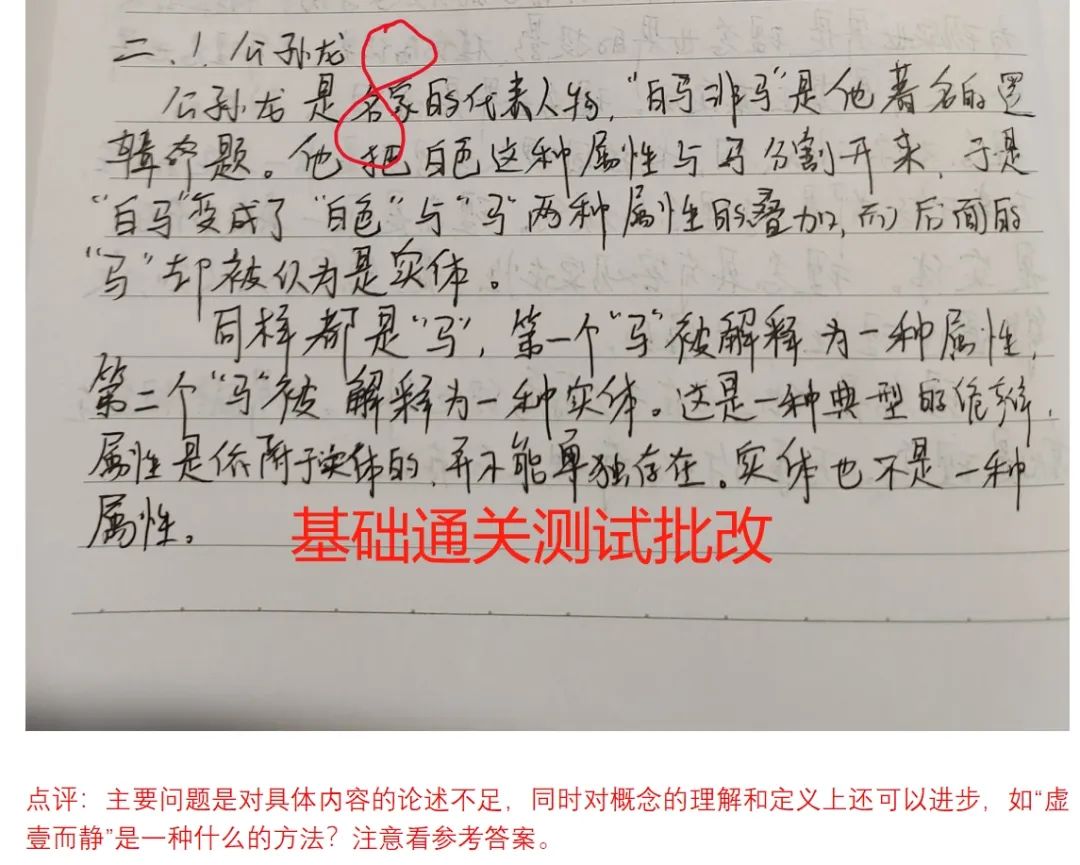 二、1.公孙龙 8
公孙龙是名家的代表人物，“白马非马”是他著名的逻
辑命题。他把白色这种属性与马分割开来，于是
“白马”变成了“白色”与“马”两种属性的叠加，而后面的
“马”却被认为是实体。
同样都是“马”，第一个“马”被解释为一种属性，
第二个“马”被解释为一种实体。这是一种典型的诡辩，
属性是依附于实体的，并不能单独存在。实体也不是一种
属性。
基础通关测试批改
点评：主要问题是对具体内容的论述不足，同时对概念的理解和定义上还可以进步，如“虚
壹而静”是一种什么的方法？注意看参考答案。